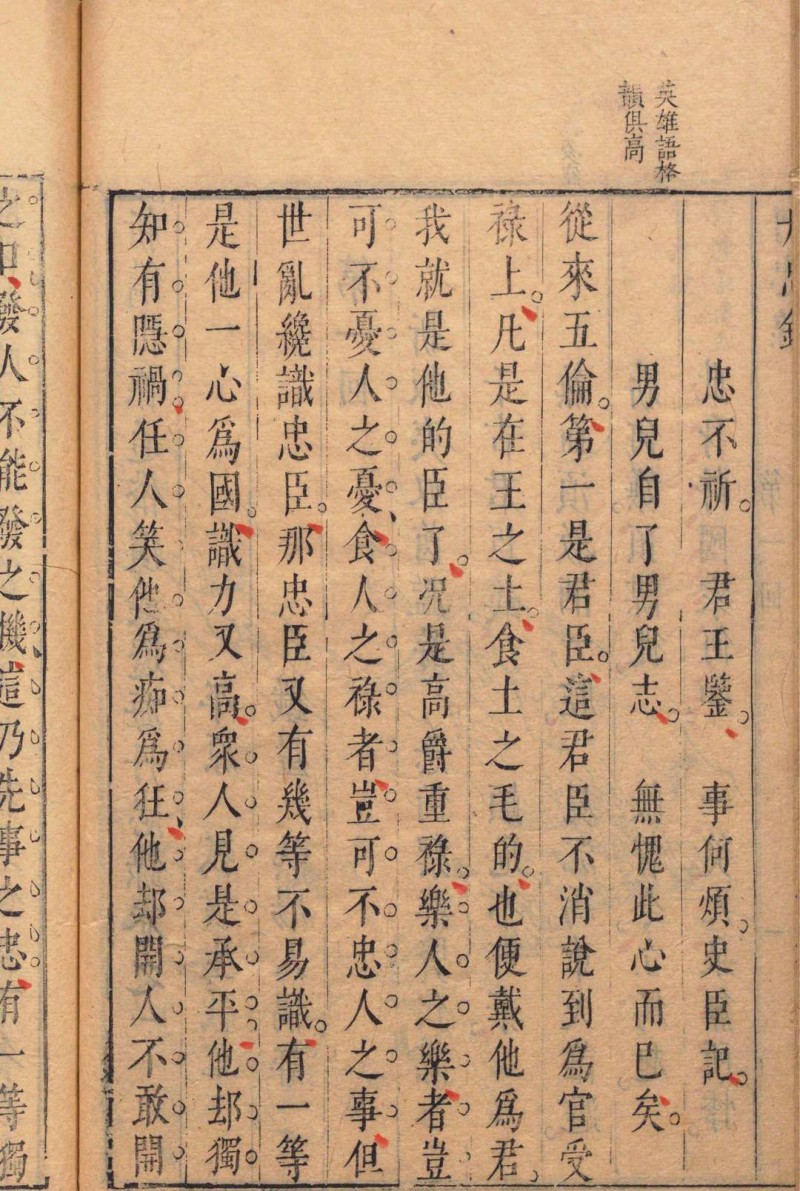 英雄語格
韻俱高
忠不祈。君王鑒。事何煩。史臣記。
男兒自了男兒志。無愧此心而已矣。
從來五倫。第一是君臣。這君臣不消說到爲官受
祿上。凡是在王之土。食土之毛的。也便戴他爲君。
我就是他的臣了。況是高爵重祿。樂人之樂者豈
可不憂人之憂、食人之祿者豈可不忠人之事但
世亂纔識忠臣。那忠臣又有幾等不易識。有一等
是他一心爲國。識力又高。衆人見是承平他却獨
知有隱禍任人笑他爲痴爲狂、他却開人不敢開
之口、發人不能發之機、這乃先事之忠。有一等獨